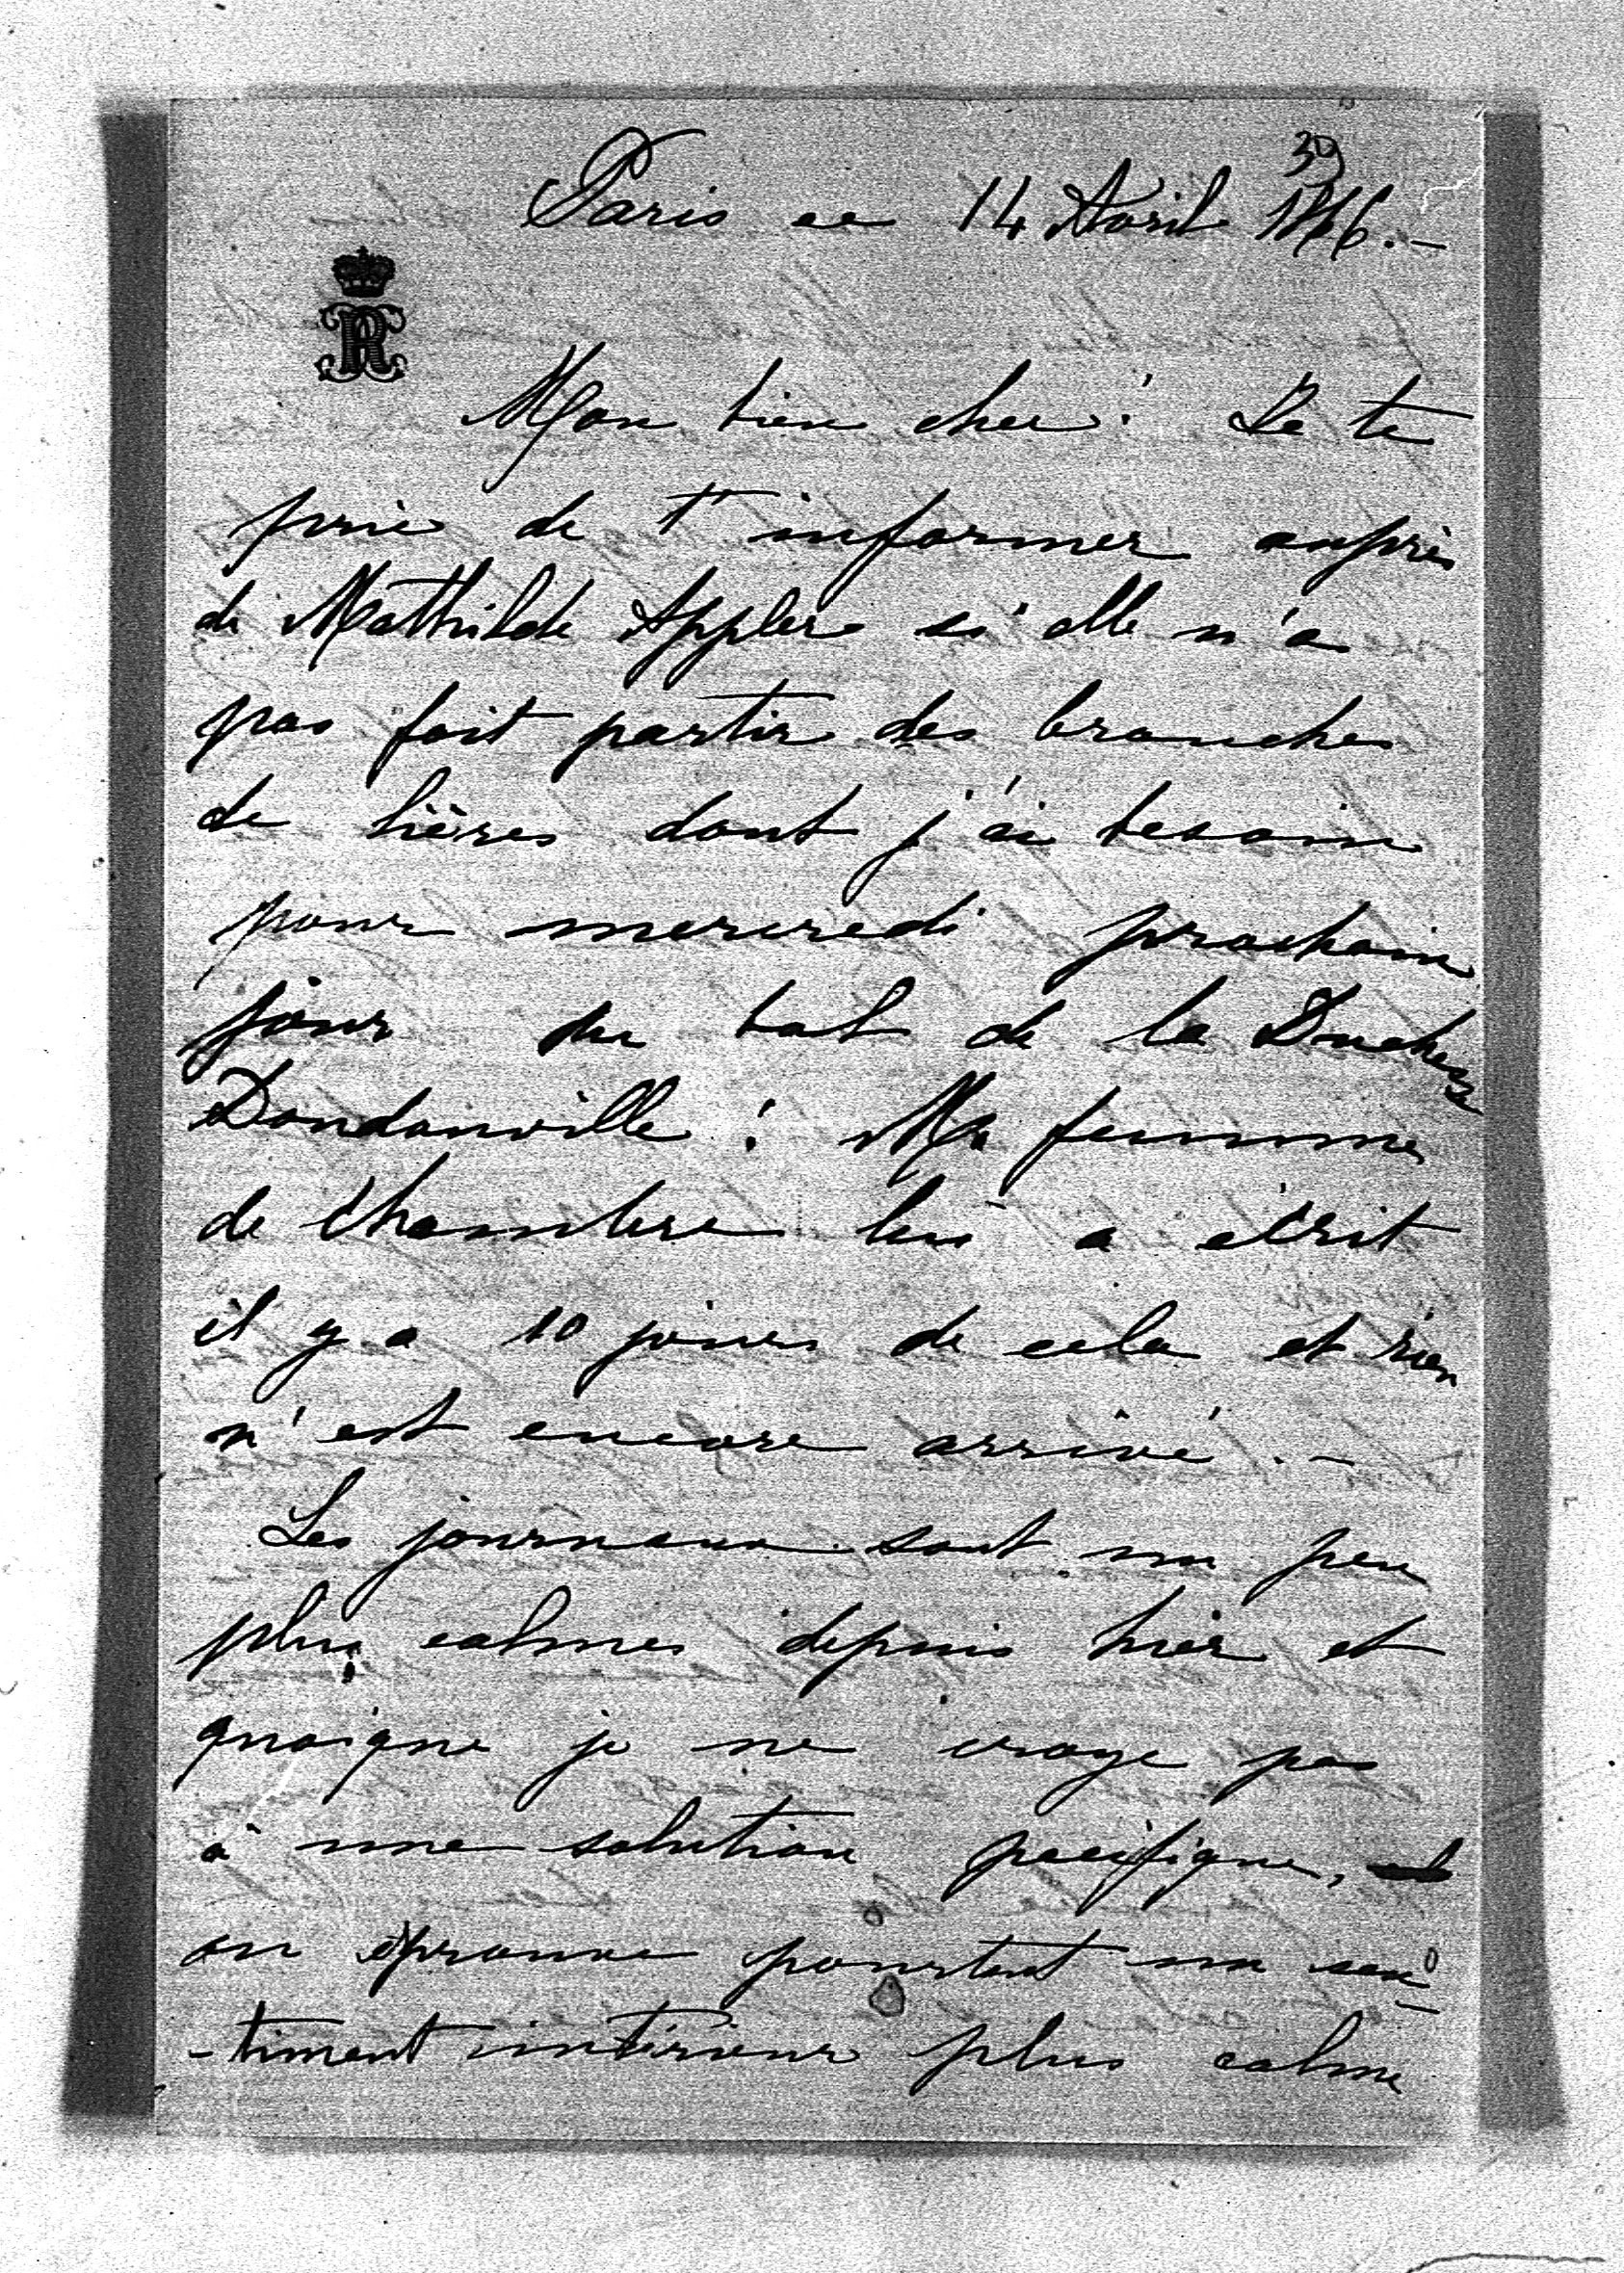 30
Paris ce 14 Avril 1866.-
Mon bien cher! Je te
prie de t'informer auprès
de Mathilde Appler si elle n'a
pas fait partir des branches
de lières dont j'ai besoin
pour mercredi prochain
jour du bal de la Duchesse
Dondonville! Ma femme
de chambre lui a écrit
il y a 10 jours de cela et rien
n'est encore arrivé.-
Les journaux sont un peu
plus calmes depuis hier et
quoique je ne croye pas
à une solution pacifique,
on éprouve pourtant un sen-
-timent intérieur plus calme